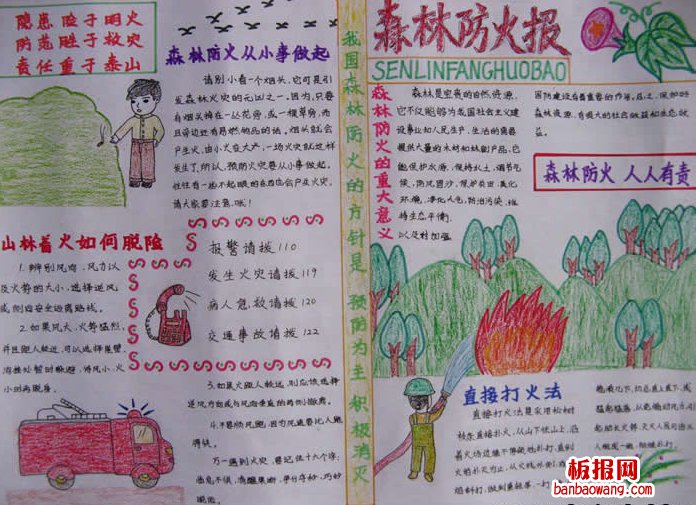 隐患险于明火
防范胜于救灾
责任重于泰山
森林防火从小事做起
请别小看一个烟头,它可是引
发森林火灾的元凶之一。因为,只要
有烟头掉在一丛花旁,或一棵草旁,而
且旁边还有易燃物品的话,烟头就会
产生火,由小火变大火,一场火灾就这样
发生了。所以,预防火灾要从小事做起。
往往有一些不起眼的东西也会产生火灾,
请大家要注意,哦!
山林着火如何脱险
1.辨别风向、风力以
及火势的大小,选择逆风
或侧面安全逃离路线。
2.如果风大,火势猛烈,
并且距人较近,可以选择崖壁、
小时再脱身。
报警请拔110
发生火灾请拔119
病人急救请拔120
交通事故请拔122
3.如果火距人较远,则应该选择
逆风方向或与风向垂直的两侧撤离。
4.不要顺风跑,因为风速要比人跑
得快。
万一遇到火灾,要记住十六个字:
临危不惧,
脱险。
我国森林防火的方针是 预防为主 积极消灭
森林防火报
SENLINFANGHUOBAO
森林防火的重大意义
森林是宝贵的自然资源,
它不仅能够为我国社会主义建
设事业和人民生产、生活的需要
提供大量的木材和林副产品,它
能保护水源、保持水土、调节气
候、防风固沙、保护农田、美化
环境、净化人气、防治污染、维
持生态平衡,
以及对加强
国防建设有着重要的作用。总之,保护好
森林资源,有很大的社会效益和生态效
益。
森林防火 人人有责
直接打火法
直接打火法是采用松树
枝条直接扑火,从山下往山上,沿
板报网
banbaowang.com